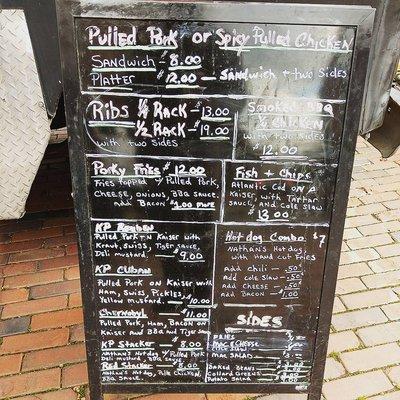 Pulled Pork or Spicy Pulled Chicken
Sandwich - 8.00
Platter - 12.00 - Sandwich + two Sides
Ribs 1/4 Rack - 13.00
1/2 Rack - 19.00
with two sides
Smoked BBQ
1/2 Chicken
with two sides
$12.00
Porky Fries $12.00
Fries topped w/ Pulled Pork,
Cheese, onions, BBQ Sauce,
add Bacon $1.00 more
Fish + Chips
Atlantic Cod on a
Kaiser, with Tartar
Sauce, and Cole Slaw
$13.00
KP Reuben
Pulled Pork on Kaiser with
Kraut, Swiss, Tiger Sauce,
Deli mustard. $9.00
KP Cuban
Pulled Pork on Kaiser with
Ham, Swiss, Pickles,
Yellow Mustard. 10.00
Chernobyl 11.00
Pulled Pork, Ham, Bacon on
Kaiser with BBQ and Tiger Sauce
KP Stacker 8.00
Nathan's Hotdog w/ Pulled Pork
Deli Mustard, BBQ Sauce
Red Stacker 8.00
Nathan's Hotdog, Chicken
BBQ Sauce
Hot dog Combo $7
Nathan's Hotdog,
with Hand cut Fries
Add Chili - .50
Add Cole Slaw - .50
Add Cheese - .50
Add Bacon - 1.00
Sides
Fries
Mac & Cheese
Cole Slaw
Mac Salad
Baked Beans
Collard Greens
Potato Salad